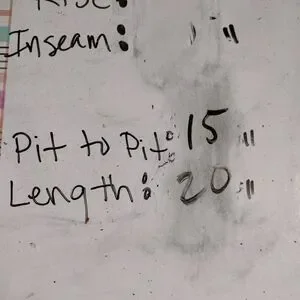 Rise:
Inseam: "
Pit to Pit: 15"
Length: 20"